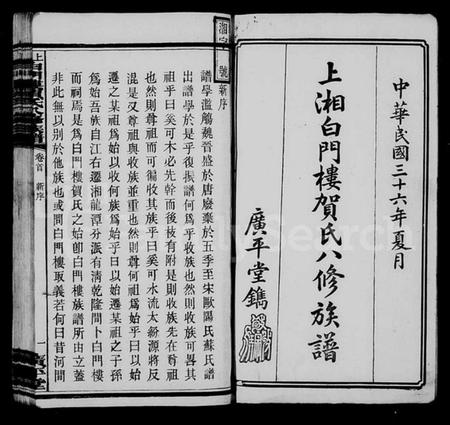 中華民國三十六年夏月
上湘白門樓賀氏八修族譜
廣平堂鐫
湘字 號
新序
譜學濫觴魏晉盛於唐廢棄於五季至宋歐陽氏蘇氏譜
出譜學於是乎復振譜何爲乎收族也然則收族可畧其
祖乎曰奚可木必先幹而後枝有附是則收族先在尊祖
也然則尊祖而可徧收其族乎曰奚可水流太紛源將反
混是又尊祖與收族並重也然則尊何祖爲始乎曰以始
遷之某祖爲始以收何族爲始乎曰以始遷某祖之子孫
爲始吾族自江右遷湘龍潭分派有淸乾隆間卜白門樓
而祠焉是爲白門樓賀氏之始卽白門樓族譜所由立蓋
非此無以別於他族也或問白門樓取義若何曰昔河間
卷首 新序
一